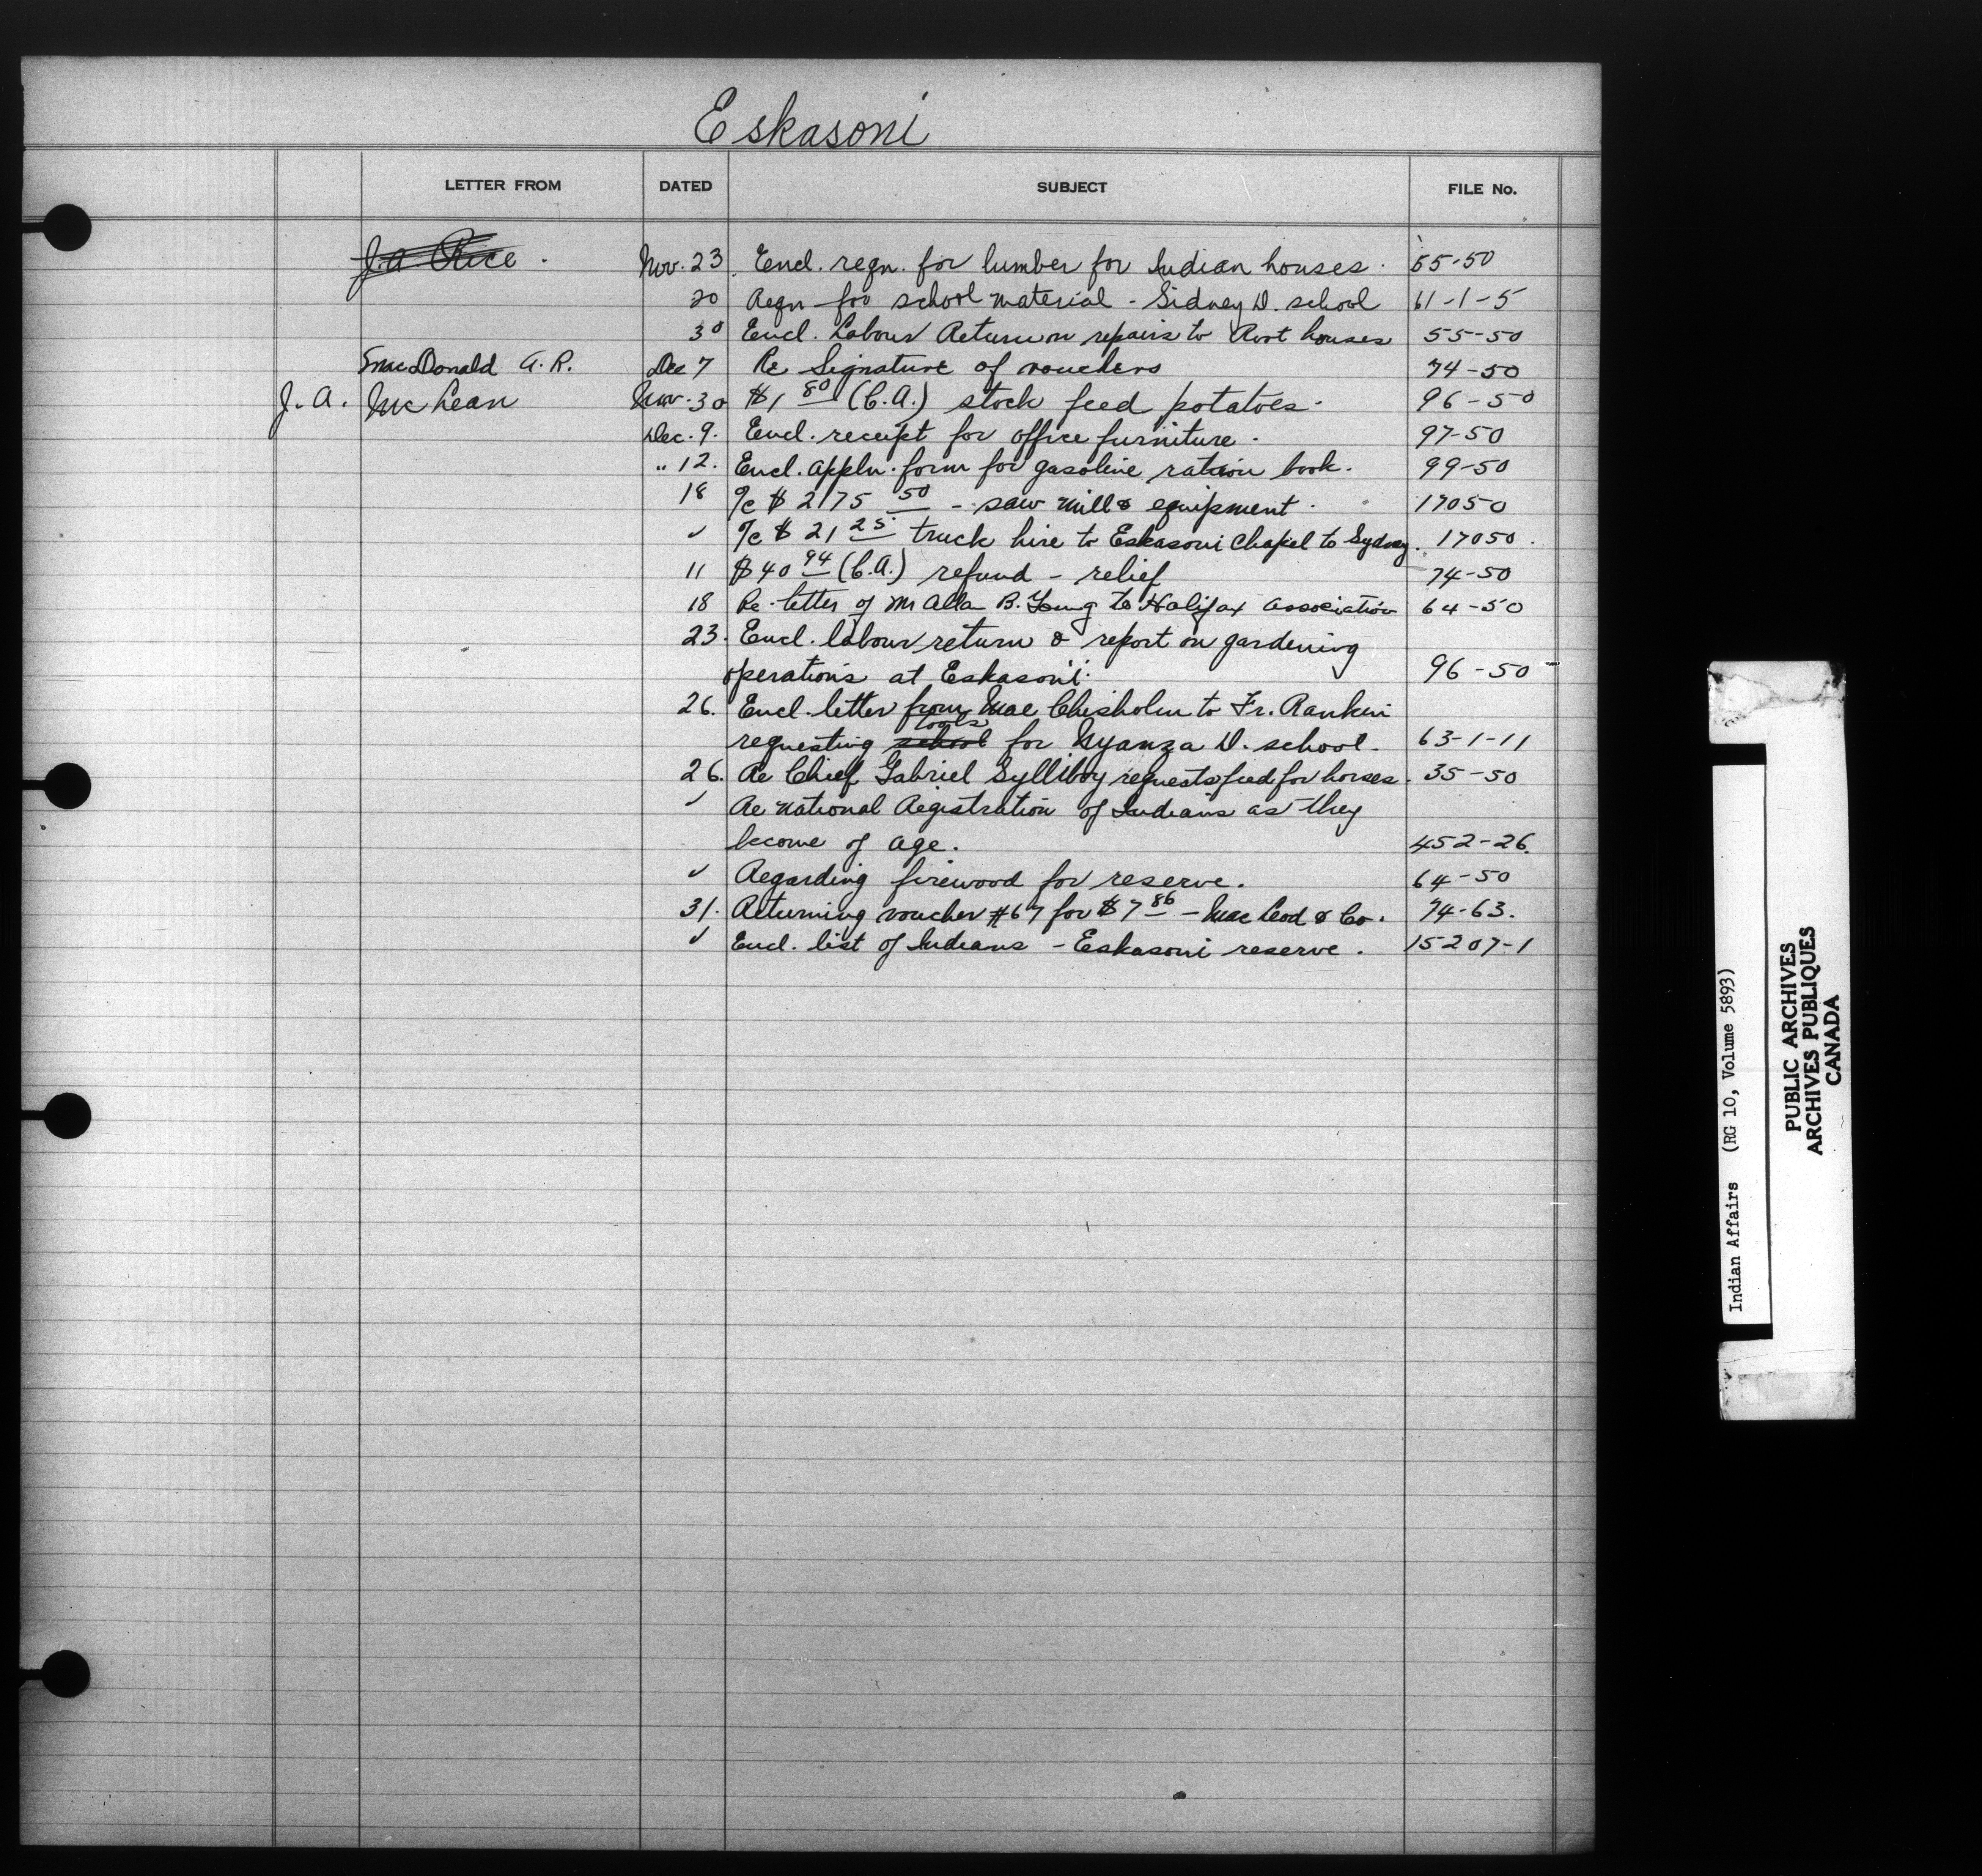 Eskasoni
LETTER FROM DATED SUBJECT FILE No.
J. A. Rice. Nov. 23. Encl. reqn. for lumber for Indian houses. 55-50
20 Reqn for school material - Sidney D. school 61-1-5
30 Encl. Labour Return on repairs to Root houses 55-50
MacDonald A. R. Dec 7 Re Signature of vouchers 74-50
J. A. McLean Nov. 30 $1 80 (C.A.) stock feed potatoes. 96-50
Dec. 9. Encl. receipt for office furniture. 97-50
" 12. Encl. appln. form for gasoline ration book. 99-50
18 %c $2175 50 - saw mill & equipment. 17050
✓ %c $21 25 truck hire to Eskasoni Chapel to Sydney. 17050.
11 $40 94 (C.A.) refund - relief 74-50
18 Re letter of B. Young to Halifax Association 64-50
23. Encl. labour return & report on gardening
operations at Eskasoni. 96-50
26. Encl. letter from Mae Chisholm to Fr. Rankin
requesting school tools for Nyanza D. school. 63-1-11
26. Re Chief Gabriel Sylliboy requests feed for horses. 35-50
✓ Re National Registration of Indians as they
become of age. 452-26.
✓ Regarding firewood for reserve. 64-50
31. Returning voucher #67 for $7 86 - MacLeod & Co. 74-63.
✓ Encl. list of Indians - Eskasoni reserve. 15207-1
Indian Affairs (RG 10, Volume 5893)
PUBLIC ARCHIVES
ARCHIVES PUBLIQUES
CANADA